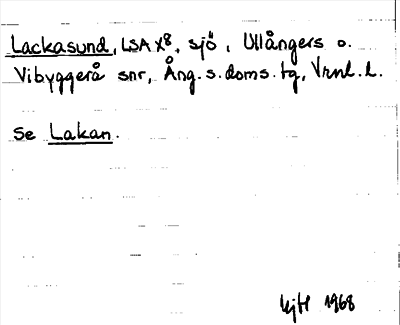 Lackasund, LSA X8, sjö, Ullångers o.
Vibyggerå snr, Ång. s. doms. tg, Vrnl. l.
Se Lakan.
1968